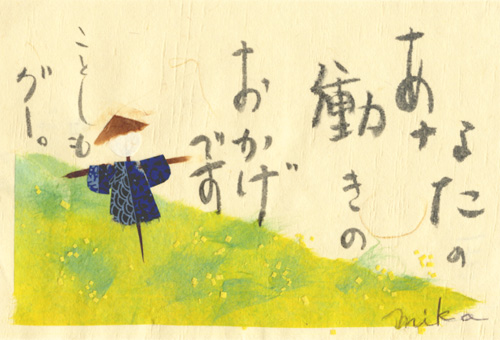 あなたの
働きの
おかげ
です
ことしも
グー。
mika